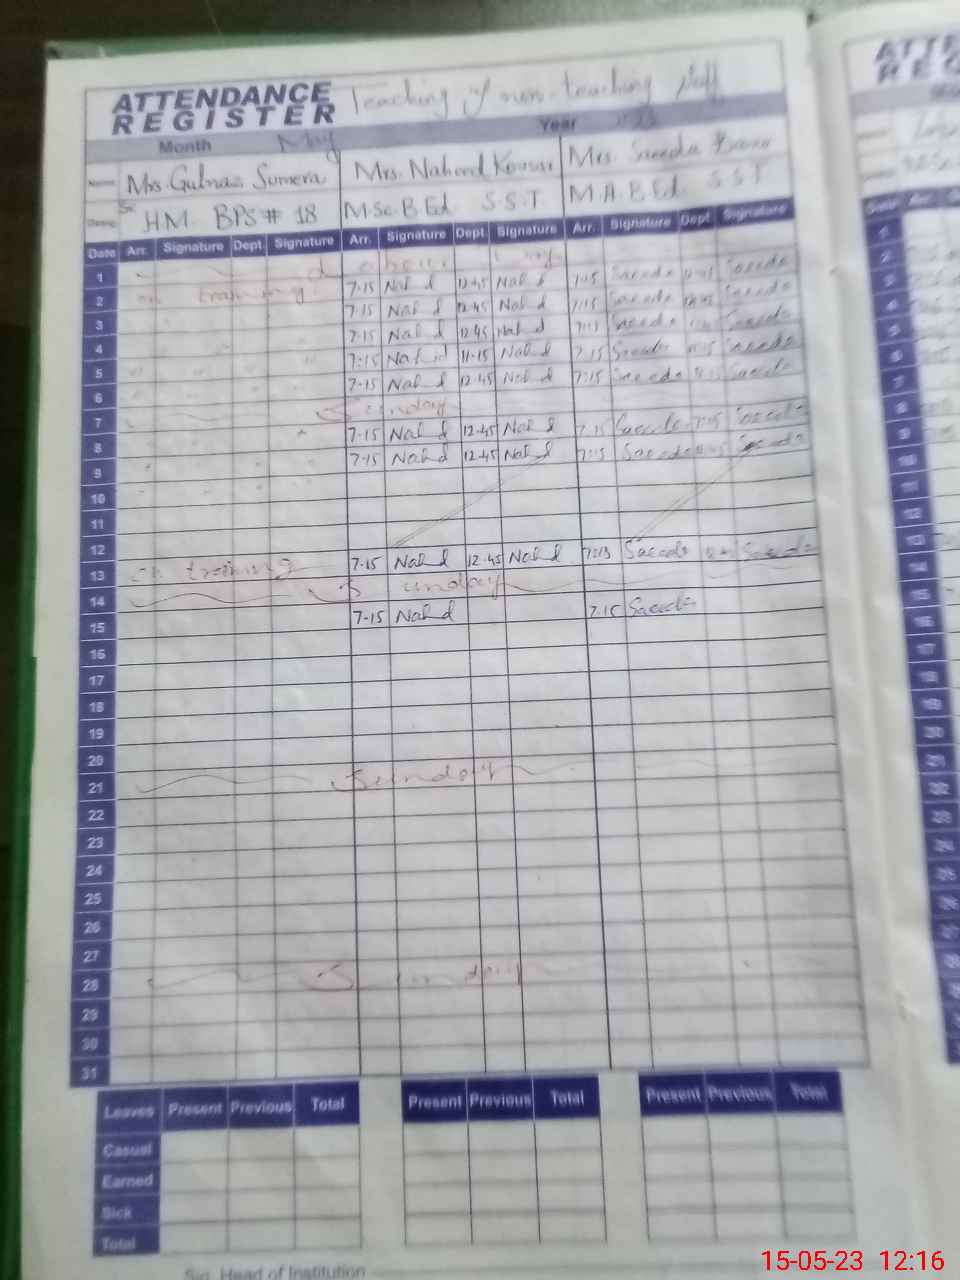 ATTENDANCE REGISTER Teaching & non-teaching staff
Month May Year
Name Mrs. Gulnaz Sumera Mrs. Naheed Kousar Mrs. Saeeda Bano
HM BPS # 18 M.Sc. B.Ed S.S.T M.A. B.Ed S.S.T
Date Arr. Signature Dept. Signature Arr. Signature Dept. Signature Arr. Signature Dept. Signature
1
2 on training 7-15 Nah d 12-45 Nah d 7:15 Saeeda Saeeda
3 7-15 Nah d 12-45 Nah d 7:15 Saeeda Saeeda
4 7-15 Nah d 12-45 Nah d Saeeda Saeeda
5 7-15 Nah d 11-15 Nah d 7:15 Saeeda Saeeda
6 7-15 Nah d 12-45 Nah d 7:15 Saeeda Saeeda
7 Sunday
8 7-15 Nah d 12-45 Nah d 7:15 Saeeda Saeeda
9 7-15 Nah d 12-45 Nah d 7:15 Saeeda Saeeda
10
11
12
13 on training 7-15 Nah d 12-45 Nah d Saeeda Saeeda
14 Sunday
15 7-15 Nah d 7:15 Saeeda
16
17
18
19
20
21 Sunday
22
23
24
25
26
27
28 Sunday
29
30
31
Leaves Present Previous Total Present Previous Total Present Previous Total
Casual
Earned
Sick
Total
Sig. Head of Institution
15-05-23 12:16